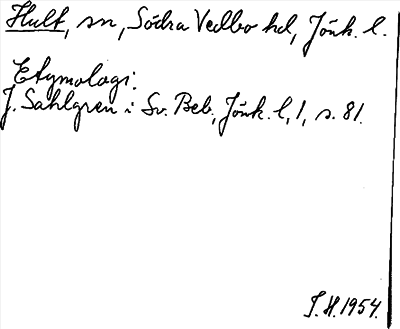 Hult, sn, Södra Vedbo hd, Jönk. l.
Etymologi:
J. Sahlgren i Sv. Beb., Jönk. l, 1, s. 81.
J. H. 1954.